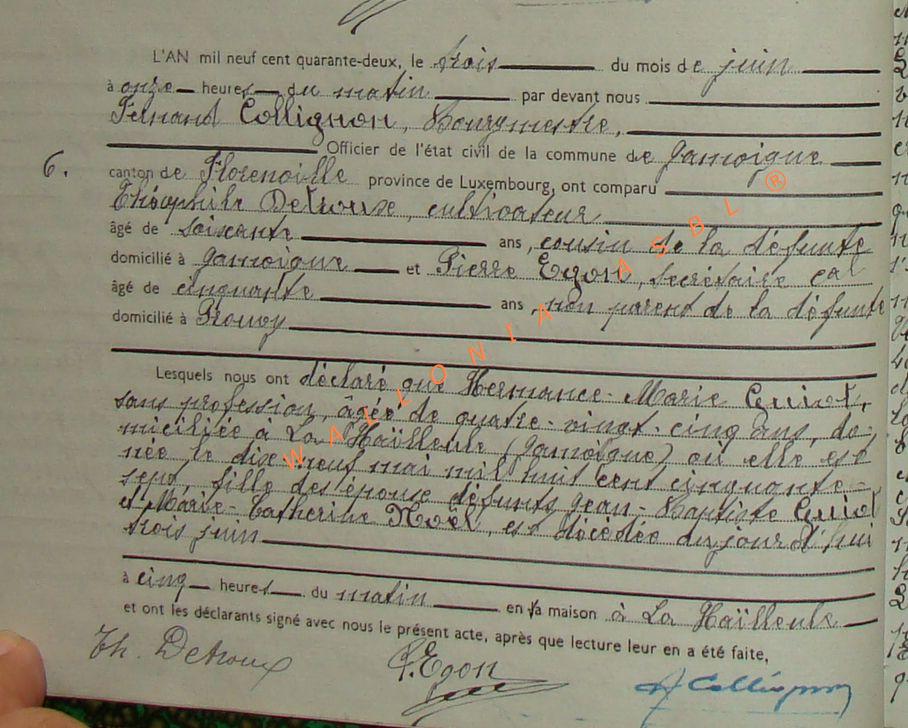 L'AN mil neuf cent quarante-deux, le trois du mois de juin
à onze heures du matin par devant nous
Fernand Collignon, Bourgmestre,
Officier de l'état civil de la commune de Jamoigne
6. canton de Florenville province de Luxembourg, ont comparu
Théophile Detroux, cultivateur
âgé de soixante ans, cousin de la défunte
domicilié à Jamoigne et Pierre Egon, secrétaire cal
âgé de cinquante ans, non parent de la défunte
domicilié à Prouvy
Lesquels nous ont déclaré que Hermance-Marie Guiot,
sans profession, âgée de quatre-vingt-cinq ans, do-
miciliée à La Haïlleule (Jamoigne) où elle est
née le dix neuf mai mil huit cent cinquante-
sept, fille des époux défunts Jean-Baptiste Guiot
et Marie-Catherine Noël, est décédée du jour d'hui
trois juin
à cinq heures du matin en sa maison à La Haïlleule
et ont les déclarants signé avec nous le présent acte, après que lecture leur en a été faite,
Th. Detroux P. Egon F Collignon
WALLONIA ASBL ®